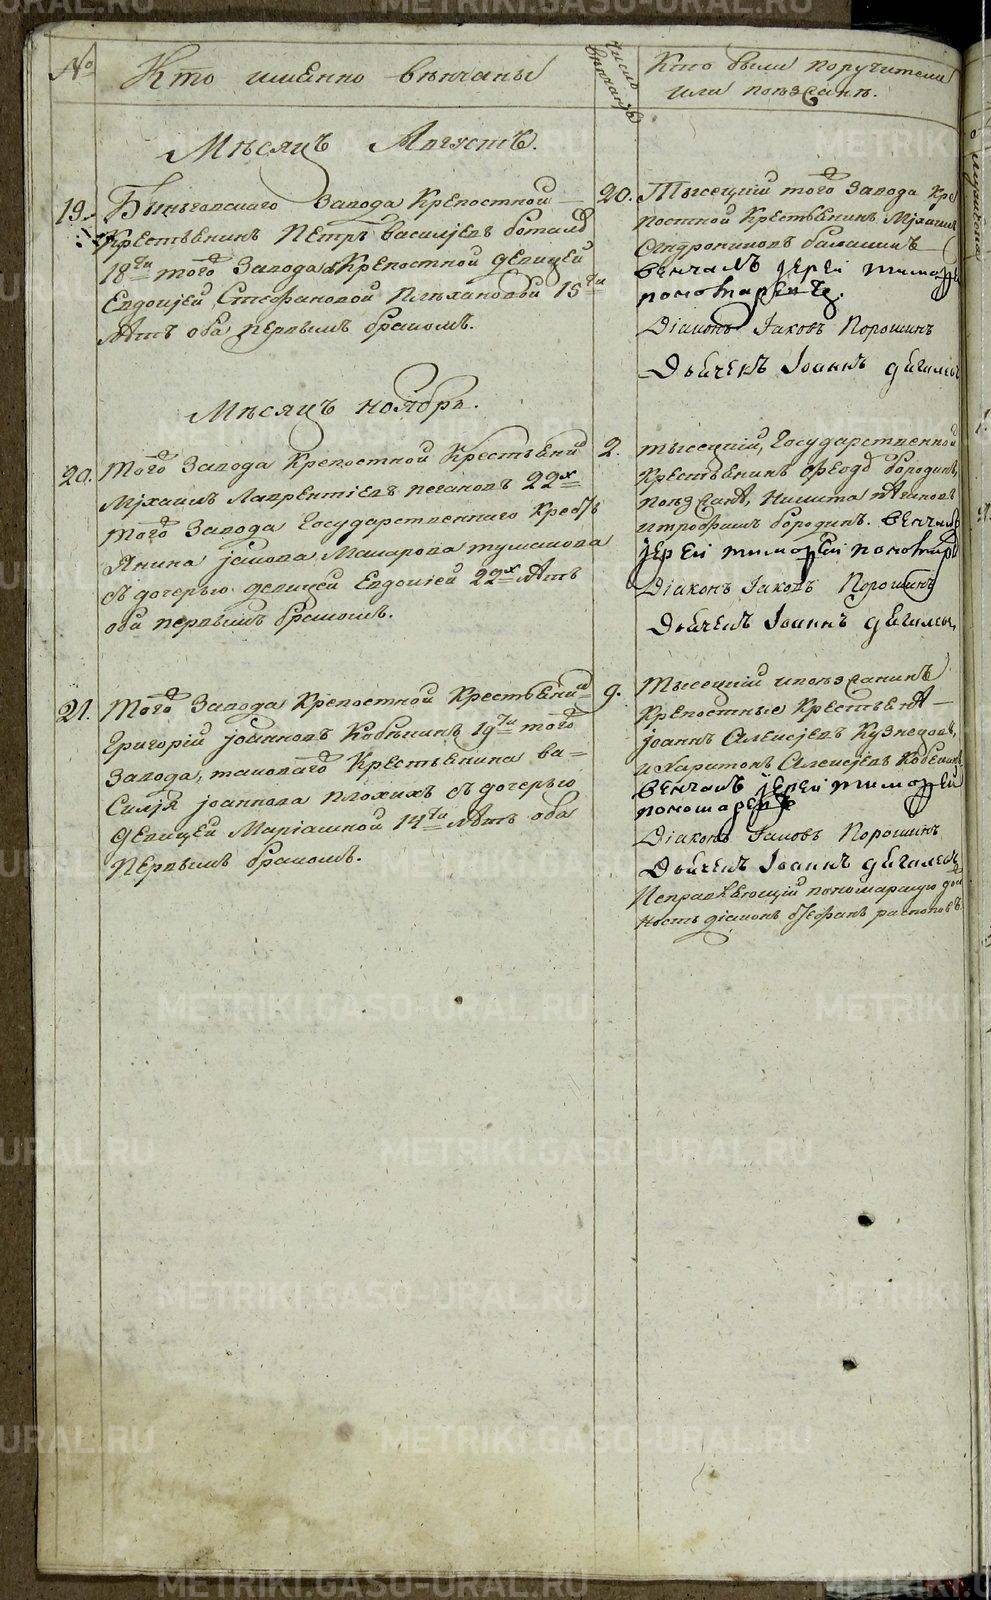 № Кто имЕнно вѣнчаны
Число вѣнчанiя
Кто были поручители
или поѣзжанѣ.
Мѣсяцъ Августъ.
19. Быньговскаго Завода Крепостной
Крестьянинъ Петръ Василiевъ
18ти того Завода Крепостной девицей
Евдокiей Стефановой Плѣхановой 15ти
лѣтъ оба первымъ бракомъ.
20. Тысецкiй того Завода Кре
постной Крестьянинъ Мiхаилъ
Андрониковъ Балашинъ
венчалъ iерей тимофей
пономаревъ.
Дiаконъ Iаковъ Порошинъ
Дьячекъ Iоаннъ
Мѣсяцъ ноябрь.
20. Того Завода Крепостной Крестьяни
Мiхаилъ Лаврентiевъ погановъ 22х
того Завода Государственнаго Крестъ
Янина iакова Макарова тушакова
съ дочерью девицей Евдокiей 22х лѣтъ
оба первымъ бракомъ.
2. тысецкiй, Государственной
Крестьянинъ Ѳеодоръ Бородинъ,
поѣзжанѣ, Никита
итрофимъ бородинъ. венчалъ
iерей тимофей пономаревъ
Дiаконъ Iаковъ Порошинъ
Дьячекъ Iоаннъ
21. Того Завода Крепостной Крестьянинъ
Григорiй iоанновъ Кобѣнинъ 19ти того
Завода, таковаго Крестьянина ва-
Силiя iоаннова плохихъ съ дочерью
девицей Марiамной 14ти лѣтъ оба
первымъ бракомъ.
9. Тысецкiй ипоѣзжанинъ
Крепостные Крестьянѣ
iоаннъ Алексiевъ Кузнецовъ,
и Харитонъ Алексiевъ Кобенинъ
венчалъ iерей тимофей
пономаревъ
Дiаконъ Iаковъ Порошинъ
Дьячекъ Iоаннъ
Исправляющiй пономарскую дол
ность дiаконъ Стефанъ распоповъ.
METRIKI.GASO-URAL.RU